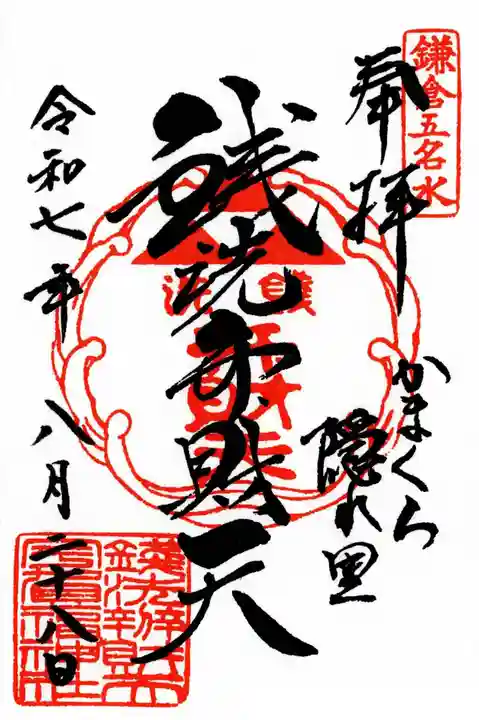 鎌倉五名水
奉拝
かまくら
隠れ里
銭洗弁財天
令和七年八月二十八日